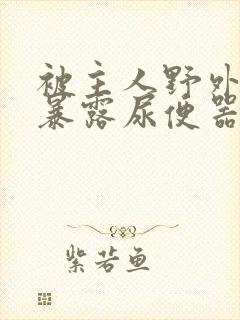 被主人野外
暴露尿便器
紫若鱼